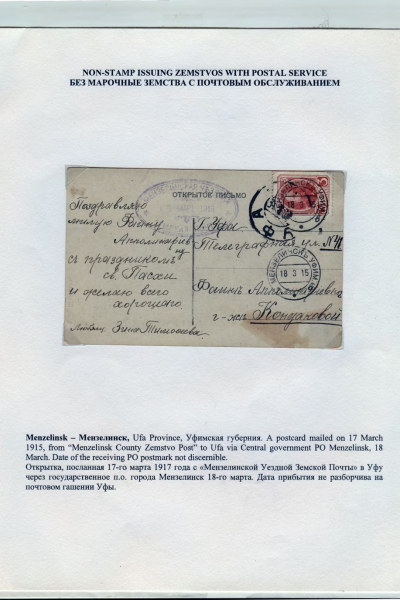 NON-STAMP ISSUING ZEMSTVOS WITH POSTAL SERVICE
БЕЗ МАРОЧНЫЕ ЗЕМСТВА С ПОЧТОВЫМ ОБСЛУЖИВАНИЕМ
ОТКРЫТОЕ ПИСЬМО
Поздравляю
милую Фаину
Апполинариев
ну
съ праздникомъ
св. Пасхи
и желаю всего
хорошаго.
Любящ. Зина Тимофеева
г. Уфа
Телеграфная ул. №
Фаинѣ Апполинариевнѣ
г-жѣ Кондаковой
УФА
МЕНЗЕЛИНСКЪ УФИМ.
18 3 15
Menzelinsk – Мензелинск, Ufa Province, Уфимская губерния. A postcard mailed on 17 March
1915, from “Menzelinsk County Zemstvo Post” to Ufa via Central government PO Menzelinsk, 18
March. Date of the receiving PO postmark not discernible.
Открытка, посланная 17-го марта 1917 года с «Мензелинской Уездной Земской Почты» в Уфу
через государственное п.о. города Мензелинск 18-го марта. Дата прибытия не разборчива на
почтовом гашении Уфы.